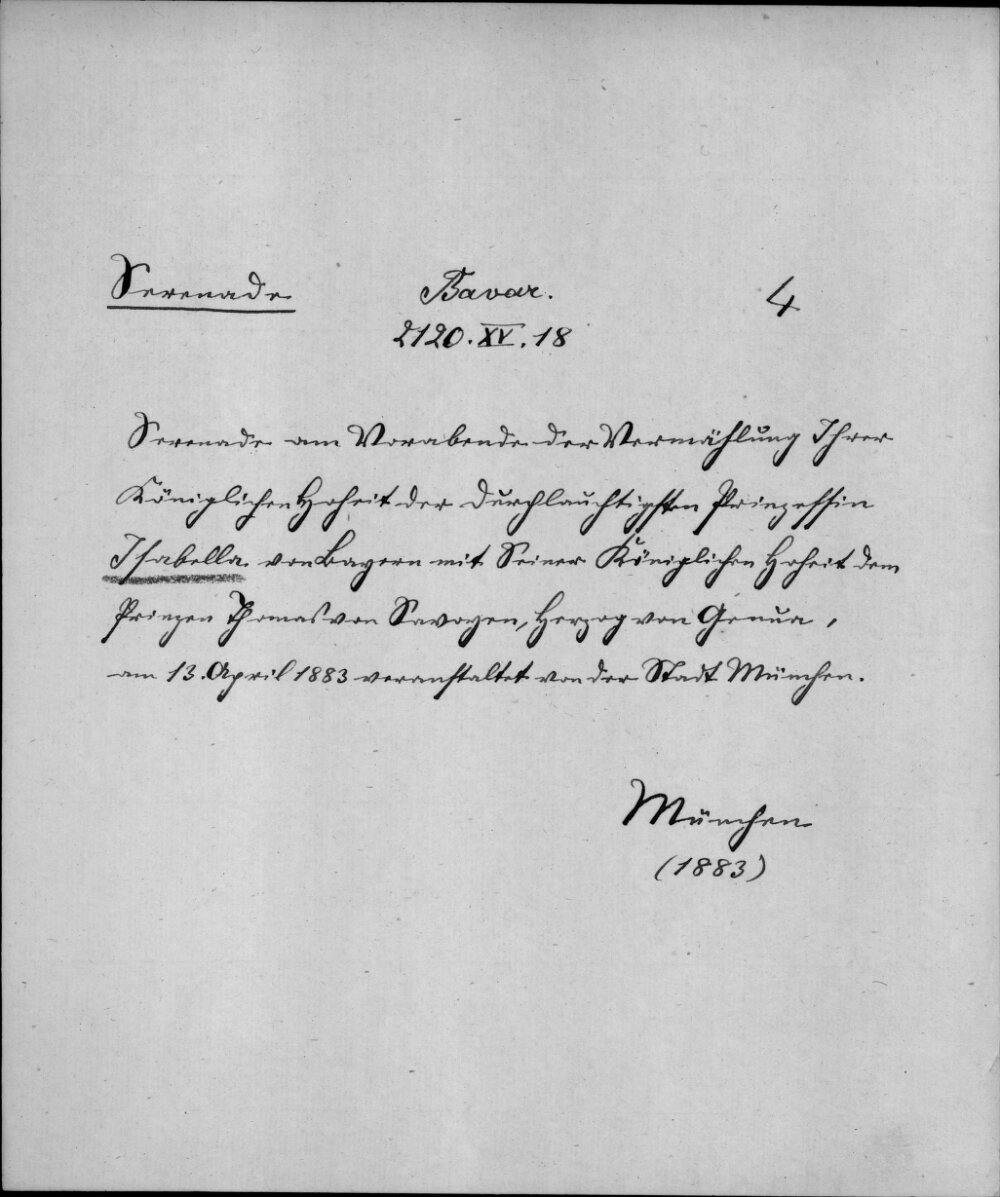 Serenade Bavar. 4
2120.XV.18
Serenade am Vorabende der Vermählung Ihrer
Königlichen Hoheit der Durchlauchtigsten Prinzessin
Isabella von Bayern mit Seiner Königlichen Hoheit dem
Prinzen Thomas von Savoyen, Herzog von Genua,
am 13. April 1883 veranstaltet von der Stadt München.
München
(1883)